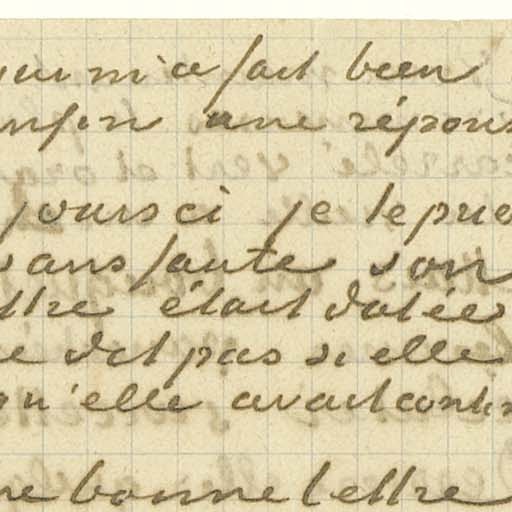 qui m'a fait bien
enfin une répons
jours ci je le prie
sans faute son
ttre était datée
ne dit pas si elle
qu'elle avait contin
ne bonne lettre